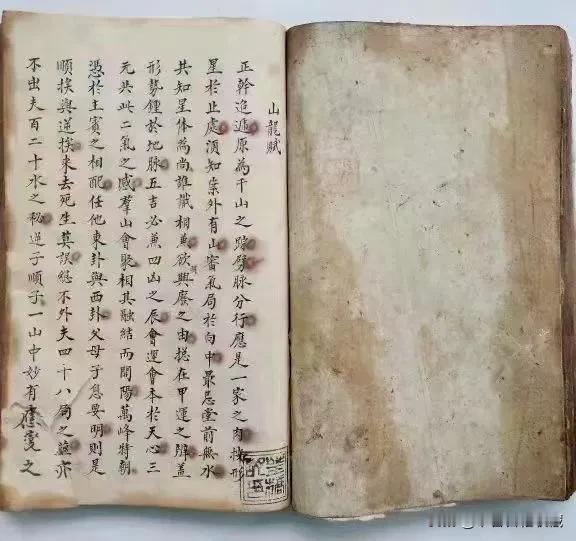 山龍賦
正幹迢遞原為千山之踪劈脉分行應是一家之肉形
星於止處須知案外有山審氣局於向中最忌堂前無水
共知星体為尚誰識相兼欲興廢之由捴在甲運之辨盖
形勢鍾於地脉五吉必兼四凶之辰會運會本於天心三
元共此二氣之感羣山會聚相其融結而開陽萬峰特朝
憑於主賓之相配任他東卦與西卦父母子息要明則是
順挨與逆挨來去死生莫誤總不外夫四十八局之亦
不出夫百二十水之秘逆子順子一山中妙有應變之